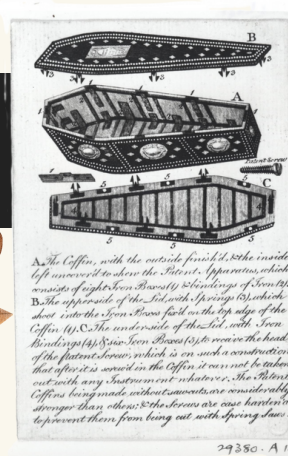 B
3 3 3 3
1 1
A
Patent Screw
C
5 5 5
4 4
5 5 5
A. The Coffin, with the outside finish'd, & the inside
left uncover'd to shew the Patent Apparatus, which
consists of eight Iron Boxes (1) & bindings of Iron (2)
B. The upper side of the Lid, with Springs (3), which
shoot into the Iron Boxes fix'd on the top edge of the
Coffin (1). C. The underside of the Lid, with Iron
Bindings (4), & six Iron Boxes (5), to receive the head
of the Patent Screw, which is on such a construction
that after it is screw'd in the Coffin it can not be taken
out with any Instrument whatever. The Patent
Coffins being made without sawcuts, are considerably
stronger than others; & the Screws are case harden'd
to prevent them from being cut with Spring Saws.
29380. A 1